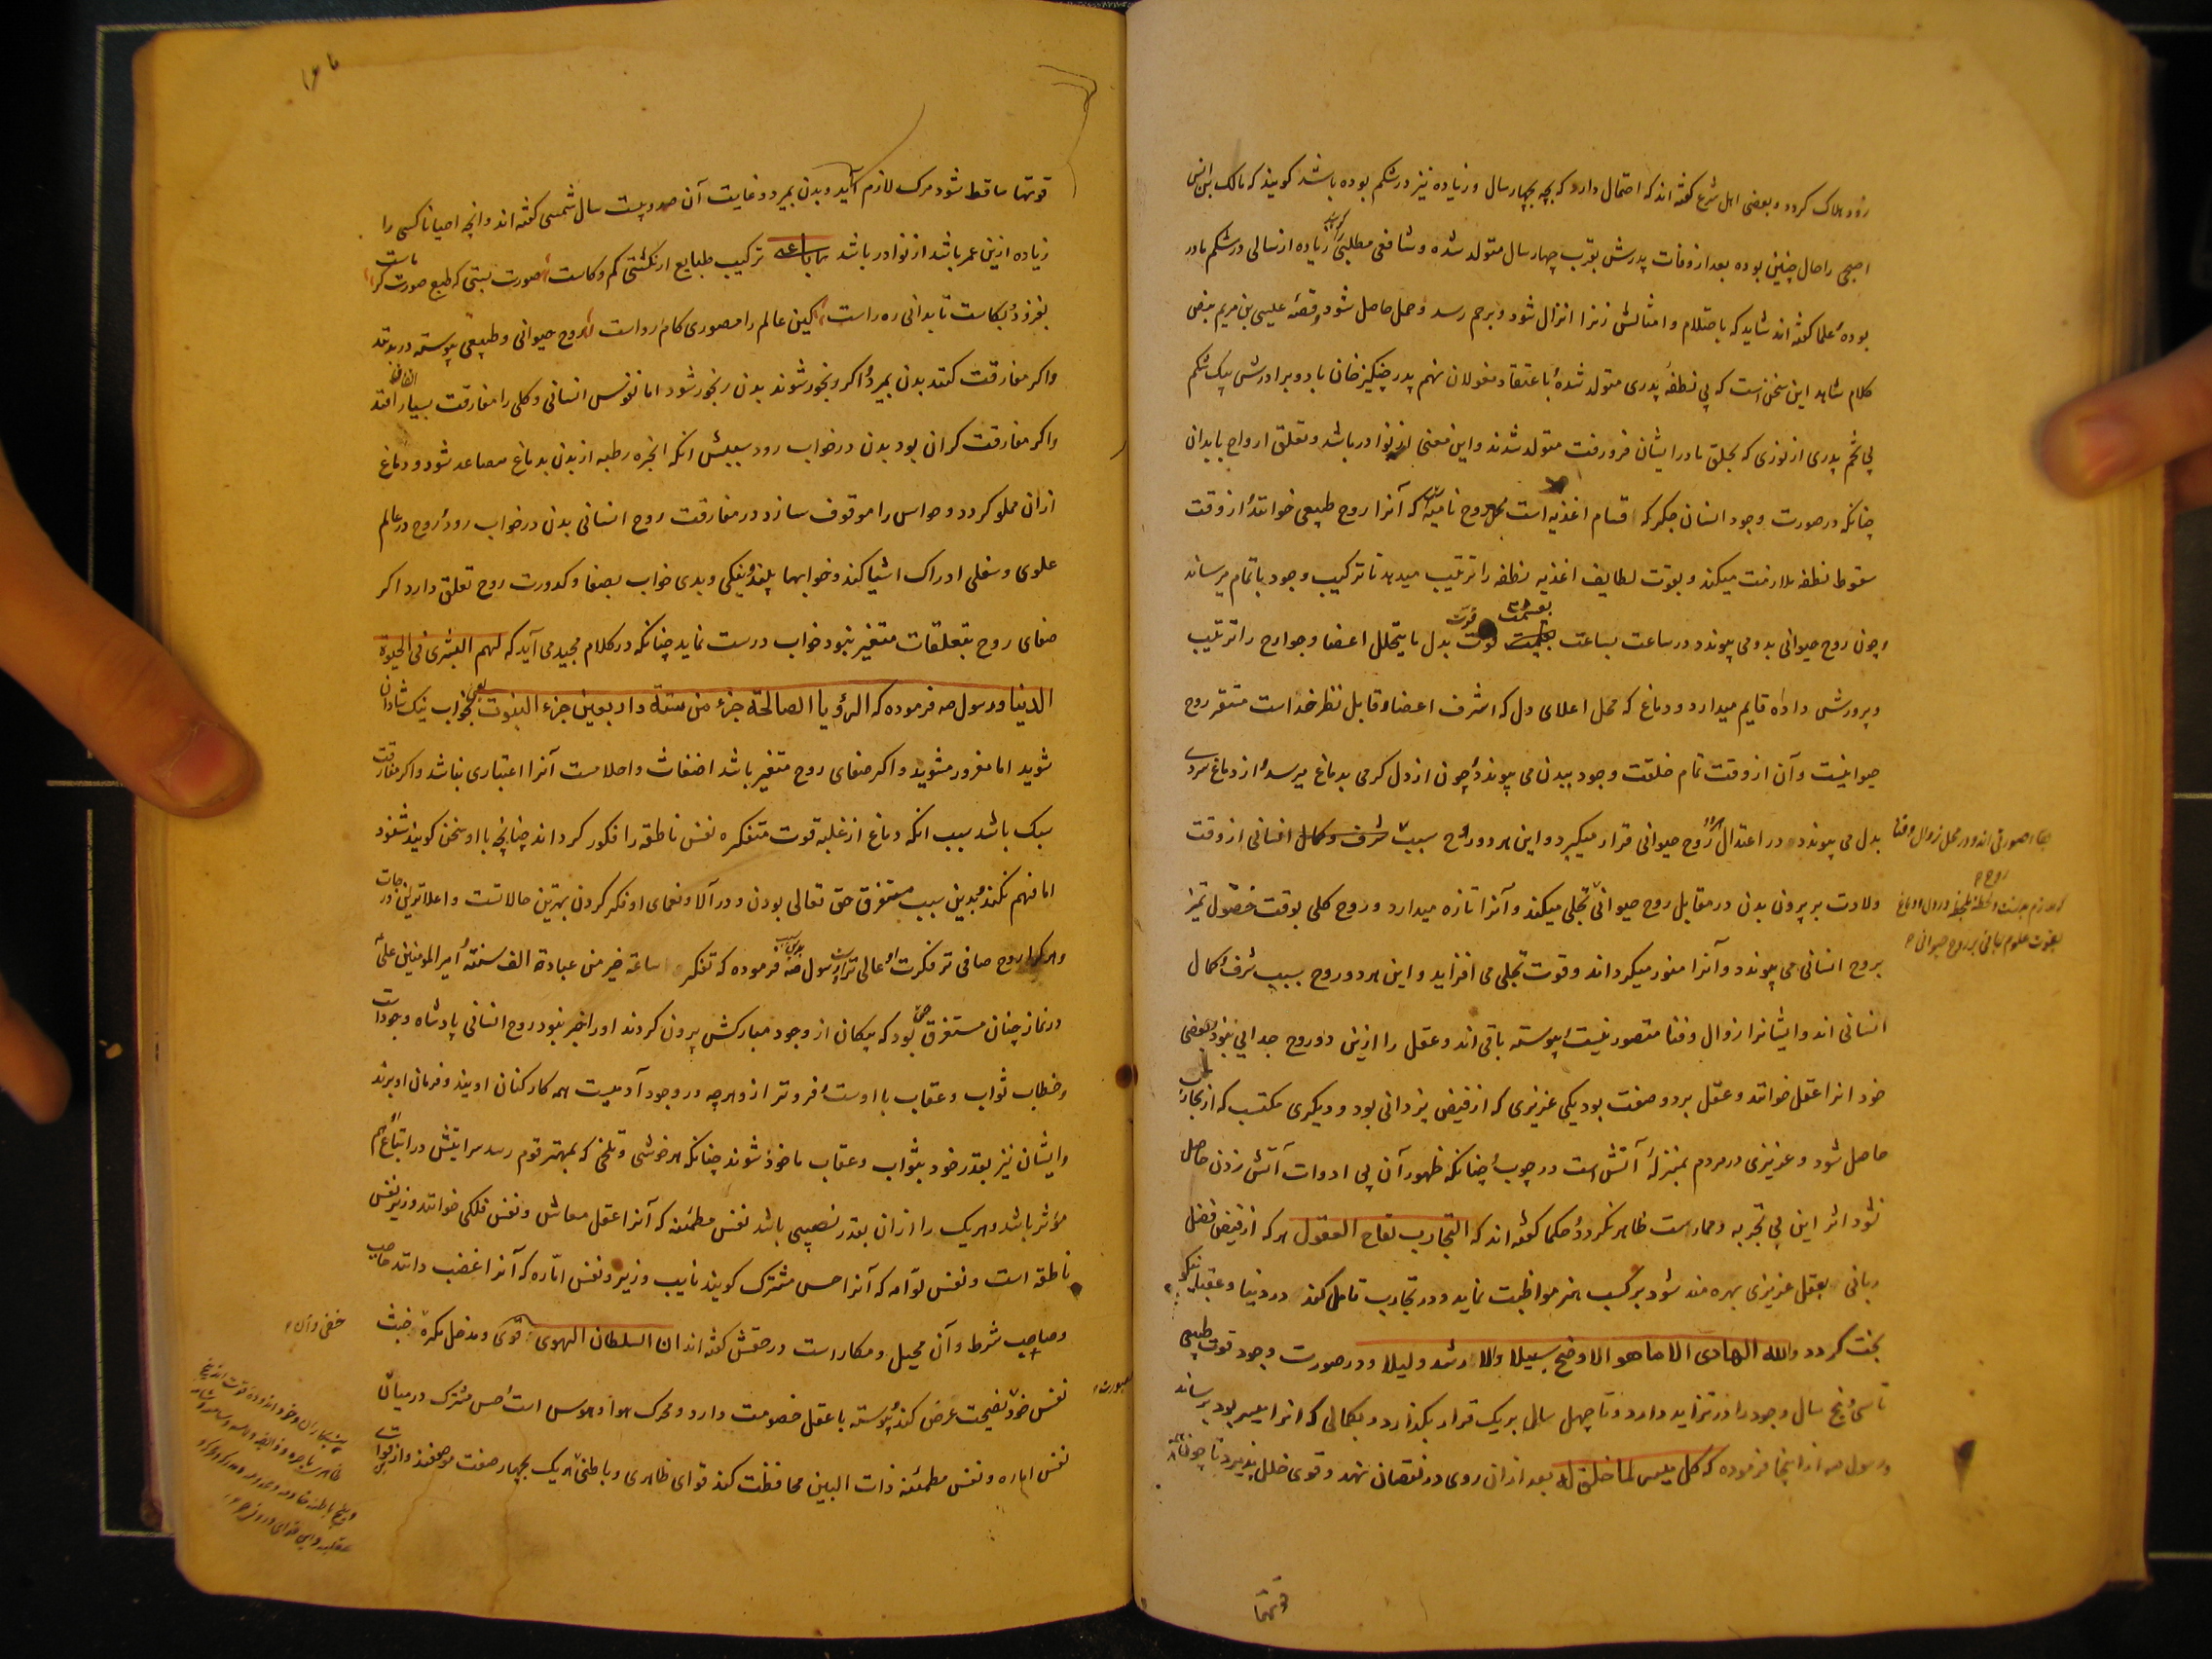 رود هلاک کردد و بعضی اهل شرع کفته اند که احتمال دارد که بچه بچهار سال و زیاده نیز در شکم بوده باشد کویند که مالک بن انس
اصبحی را حال چنین بوده بعد از وفات پدرش بقرب چهار سال متولد شده و شافعی مطلبی را زیاده از سالی در شکم مادر
بوده علما کفته اند شاید که باحتلام و امثالش زنرا انزال شود و برحم رسد و حمل حاصل شود و قصهٔ عیسی بن مریم بنص
کلام شاهد این سخن است که بی نطفهٔ پدری متولد شده باعتقاد مغولان نهم پدر چنکیز خان با دو برادرش بیک شکم
بی تخم پدری از نوری که بحلق مادر ایشان فرو رفت متولد شدند و این معنی از نوادر باشد و تعلق ارواح بابدان
چنانکه در صورت وجود انسان جکر که قسام اغذیه است محل روح نامیه که آنرا روح طبیعی خوانند از وقت
سقوط نطفه ملازمت میکند و بقوت لطایف اغذیه نطفه را ترتیب میدهد تا ترکیب وجود باتمام میرساند
و چون روح حیوانی بدو می پیوندد در ساعت بساعت قوت بدل ما یتحلل اعضا و جوارح را ترتیب
و پرورش داده قایم میدارد و دماغ که محل اعلای دل که اشرف اعضا و قابل نظر خداست مستقر روح
حیوانیست و آن از وقت تمام خلقت وجود ببدن می پیوندد چون از دل کرمی بدماغ میرسد از دماغ سردی
بدل می پیوندد در اعتدال روح حیوانی قرار میکیرد و این هر دو روح سبب شرف و کمال انسانی از وقت
ولادت بر پرون بدن در مقابل روح حیوانی تجلی میکند و آنرا تازه میدارد و روح کلی بوقت حصول تمیز
بروح انسانی می پیوندد و آنرا منور میکرداند و قوت تجلی می افزاید و این هر دو روح بسبب شرف کمال
انسانی اند و ایشانرا زوال و فنا متصور نیست پیوسته باقی اند و عقل را ازین دو روح جدایی نبود و بعضی
خود انرا عقل خوانند و عقل بر دو صفت بود یکی غریزی که از فیض یزدانی بود و دیکری مکتسب که از تجارب
حاصل شود و غریزی در مردم بمنزلهٔ آتش است در چوب چنانکه ظهور آن بی ادوات آتش زدن حاصل
نشود اثر این بی تجربه و ممارست ظاهر نکردد حکما کفته اند که التجارب لقاح العقول هر که از فیض فضل
ربانی بعقل غریزی بهره مند شود بر کسب هنر مواظبت نماید و در تجارب تامل کند در دنیا و عقبی نیک
بخت کردد والله الهادی الا ما هو الاوضح سبیلا والارشد دلیلا و در صورت وجود قوت طبیعی
تا سی و پنج سال وجود را در تزاید دارد و تا چهل سال بر یک قرار بکذارد و بکمالی که انرا میسر بود برساند
و رسول صه از اینجا فرموده که کل میسر لما خلق له بعد از ان روی در نقصان نهد و قوی خلل پذیرد تا چون
قوتها
قوتها ساقط شود مرک لازم آید و بدن بمیرد و غایت آن صد و بیست سال شمسی کفته اند و انچه احیانا کسی را
زیاده ازین عمر باشد از نوادر باشد ترکیب طبایع ار نکشتی کم و کاست صورت بستی که طبع صورت کر ماست
بفزود بکاست تا بدانی ره راست کین عالم را مصوری کام رواست روح حیوانی و طبیعی پیوسته در بدنند
و اکر مفارقت کنند بدن بمیرد و اکر رنجور شوند بدن رنجور شود اما نفوس انسانی و کلی را مفارقت بسیار اتفاق افتد
و اکر مفارقت کران بود بدن در خواب رود سببش انکه ابخره رطبه از بدن بدماغ متصاعد شود و دماغ
از ان مملو کردد و حواس را موقوف سازد در مفارقت روح انسانی بدن در خواب رود روح در عالم
علوی و سفلی ادراک اشیا کند و خوابها بیند و نیکی و بدی خواب بصفا و کدورت روح تعلق دارد اکر
صفای روح بتعلقات متغیر نبود خواب درست نماید چنانکه در کلام مجید می آید که لهم البشری فی الحیوة
الدنیا و رسول صه فرموده که الرؤیا الصالحة جزء من ستة و اربعین جزء النبوت یعنی بخواب نیک شادان
شوید اما مغرور مشوید و اکر صفای روح متغیر باشد اضغاث و احلامست آنرا اعتباری نباشد و اکر مفارقت
سبک باشد سبب انکه دماغ از غلبه قوت متفکره نفس ناطقه را فکور کرداند چنانچه با او سخن کویند شنود
اما فهم نکند بدین سبب مستغرق حق تعالی بودن و در آلا و نعمای او فکر کردن بهترین حالاتست و اعلاترین درجات
و هر کرا روح صافی تر فکرت عالی تر رسول صه فرموده که تفکر ساعة خیر من عبادة الف سنة امیر المومنین علی
در نماز چنان مستغرق حق بود که پیکان از وجود مبارکش برون کردند او را خبر نبود روح انسانی پادشاه وجود است
و خطاب ثواب و عقاب با اوست فروتر از و هرچه در وجود آدمیست همه کارکنان اویند و فرمان او برند
و ایشان نیز بقدر خود بثواب و عقاب ماخوذ شوند چنانکه هر خوشی و تلخی که بمهتر قوم رسد سرایتش در اتباع هم
مؤثر باشد و هر یک را از ان بقدر نصیبی باشد نفس مطمئنه که آنرا عقل معاش و نفس فلکی خوانند وزیر نفس
ناطقه است و نفس لوامه که آنرا حس مشترک کویند نایب وزیر و نفس اماره که آنرا غضب دانند حاجب
و صاحب شرط و آن محیل و مکار است در حقش کفته اند ان السلطان الهوی قوی و مدخل مکره خبث
نفس خود نصیحت عرض کند پیوسته با عقل خصومت دارد و محرک هوا و هوس است حس مشترک در میان
نفس اماره و نفس مطمئنه ذات البین محافظت کند قوای ظاهری و باطنی هریک بچهار صفت موصوفند و از